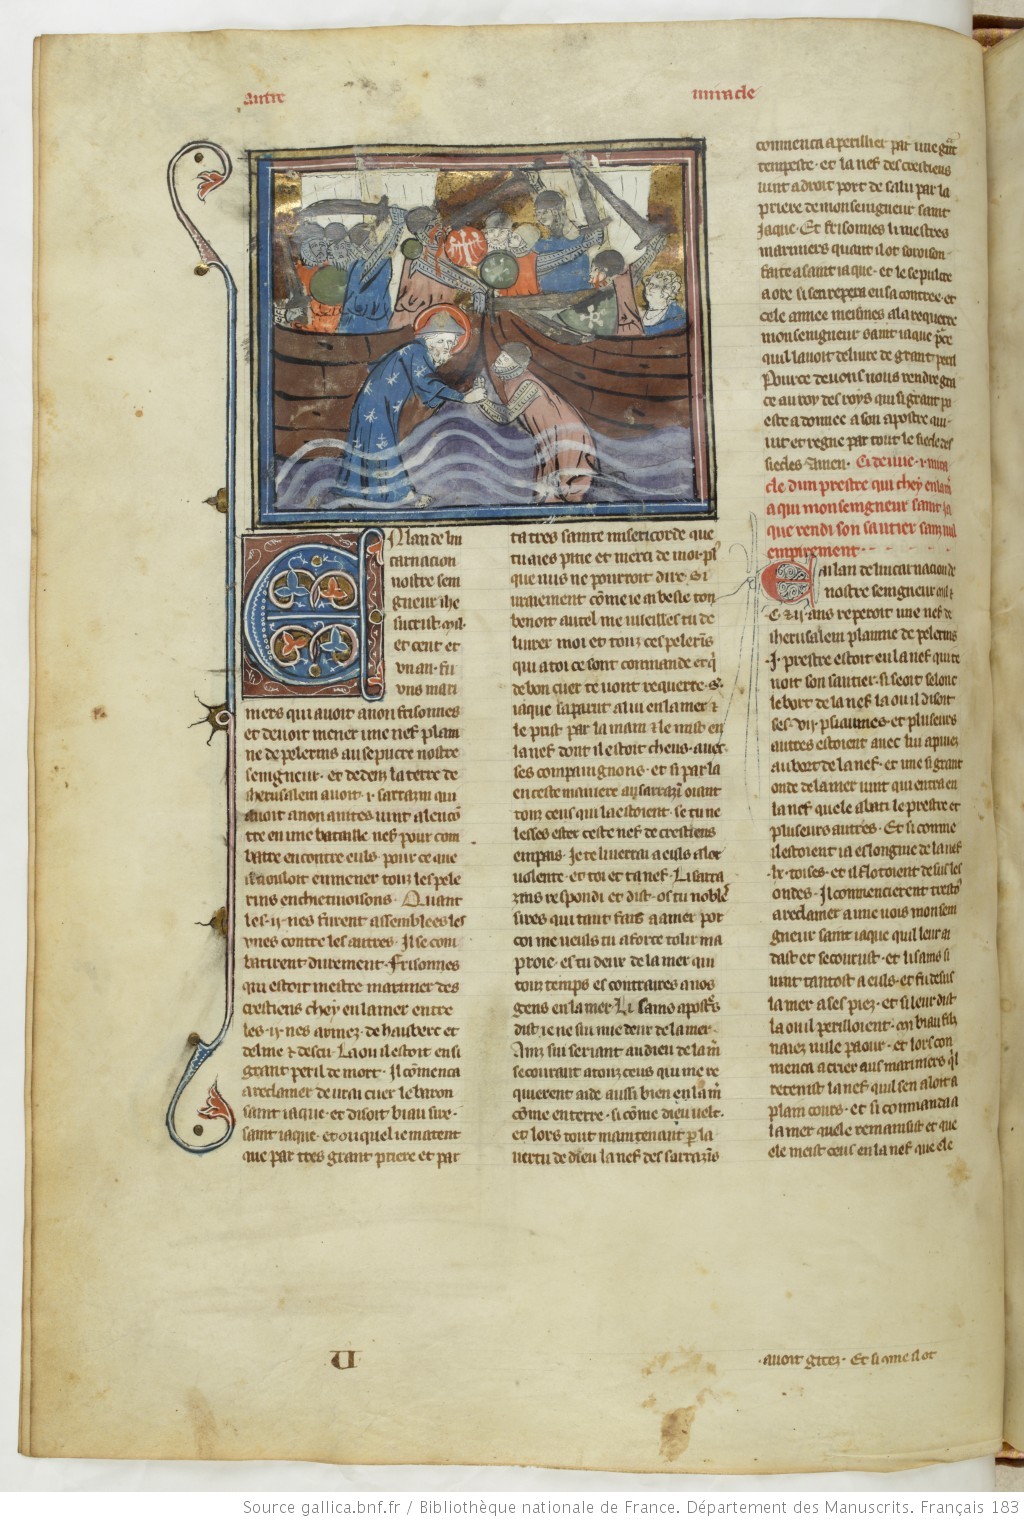 autre
miracle
En lan de lin
carnacion
nostre sei
gneur ihe
sucrist mil
et cent et
vn an. fu
vns mari
niers qui auoit a non frisonnes
et deuoit mener une nef plain
ne de pelerins au sepucre nostre
seingneur. et dedenz la terre de
iherusalem auoit .i. sarrazin qui
auoit a non auites uint a lencō
tre en une bataille nef pour com
batre encontre euls. pour ce que
il uouloit enmener touz les pele
rins en chetiuoisons. Quant
les .ij. nes furent assemblees les
vnes contre les autres. Il se com
batirent durement. Frisonnes
qui estoit mestre marinier des
crestiens chey en la mer entre
les .ij. nes armez. de haubert et
delme et descu. La ou il estoit en si
grant peril de mort. Il cōmenca
a reclamer de urai cuer le baron
saint iaque. et disoit biau sire.
saint iaque. et ou quel ie matent
que par tres grant priere et par
ta tres sainte misericorde que
tu aies pitie et merci de moi. pl'
que nus ne pourroit dire. Si
uraiement cōme ie ai besie ton
benoit autel me uueilles tu de
liurer moi et touz ces pelerīs
qui a toi ce sont conmande et q̄
de bon cuer te uont requerre. S.
iaque saparut a lui en la mer et
le prist par la main et le mist en
la nef dont il estoit cheus. auec
ses compaingnons. et si parla
en ceste maniere au sarrazī oiant
touz ceus qui la estoient. se tu ne
lesses ester ceste nef de crestiens
en pais. Je te liuerrai a euls a lor
uolente. et toi et ta nef. Li sarra
zins respondi et dist. os tu nobles
sires qui tant fais a amer por
coi me ueuls tu a force tolir ma
proie. es tu deux de la mer qui
touz temps es contraires a nos
gens en la mer. Li sains apostres
dist. ie ne sui mie deux de la mer.
Ainz sui seriant au dieu de la mer
secourant a touz ceus qui me re
quierent aide aussi bien en la mer
cōme en terre. si cōme dieu uelt.
et lors tout maintenant par la
uertu de dieu la nef des sarrazins
conmenca a perillier par une grāt
tempeste. et la nef des crestiens
uint a droit port de salu par la
priere de monseingneur saint
iaque. Et frisonnes li mestres
mariniers quant il ot soroison
faite a saint iaque. et le sepulcre
aore si sen repera en sa contree. et
cele annee meismes ala requerre
monseingneur saint iaque par ce
quil lauoit deliure de grant peril
Pour ce deuons nous rendre gra
ce au roy des roys qui si grant po
este a donnee a son apostre qui
uit et regne par tout le siecle des
siecles Amen. Ci deuise .i. mira
cle dun prestre qui chey en la mer
a qui monseingneur saint Ja
que rendi son sautier sanz nul
empirement
En lan de lincarnacion de
nostre seingneur mil et
.C. et .ij. ans reperoit une nef de
iherusalem plainne de pelerins
.I. prestre estoit en la nef qui te
noit son sautier. si seoit selonc
le bort de la nef la ou il disoit
ses .vij. psaumes. et plusieurs
autres estoient auec lui apuiez
au bort de la nef. et une si grant
onde de la mer uint qui entra en
la nef quele abati le prestre et
plusieurs autres. Et si comme
il estoient ia eslongnie de la nef
.lx. toises. et il flotoient desus les
ondes. Il commencierent trestouz
a reclamer a une uois monsein
gneur saint iaque quil leur ai
dast et secourust. et li sains si
uint tantost a euls. et fu desus
la mer a ses piez. et si leur dist
la ou il perilloient. mi biau filz
naiez nule paour. et lors con
menca a crier aus mariniers quil
retenist la nef quil sen aloit a
plain cours. et si conmanda a
la mer quele remansist et que
ele meist ceus en la nef que ele
U
.auoit gitez. Et si come il ot
Source gallica.bnf.fr / Bibliothèque nationale de France. Département des Manuscrits. Français 183